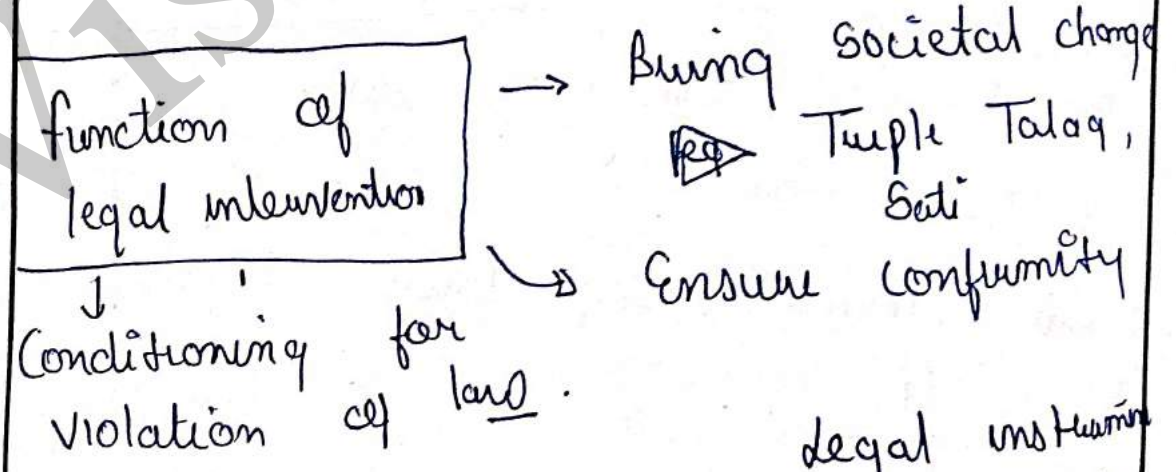 function of
legal intervention
→ Bring societal change
eg Triple Talaq,
Sati
Ensure conformity
Conditioning for
violation of law.
Legal